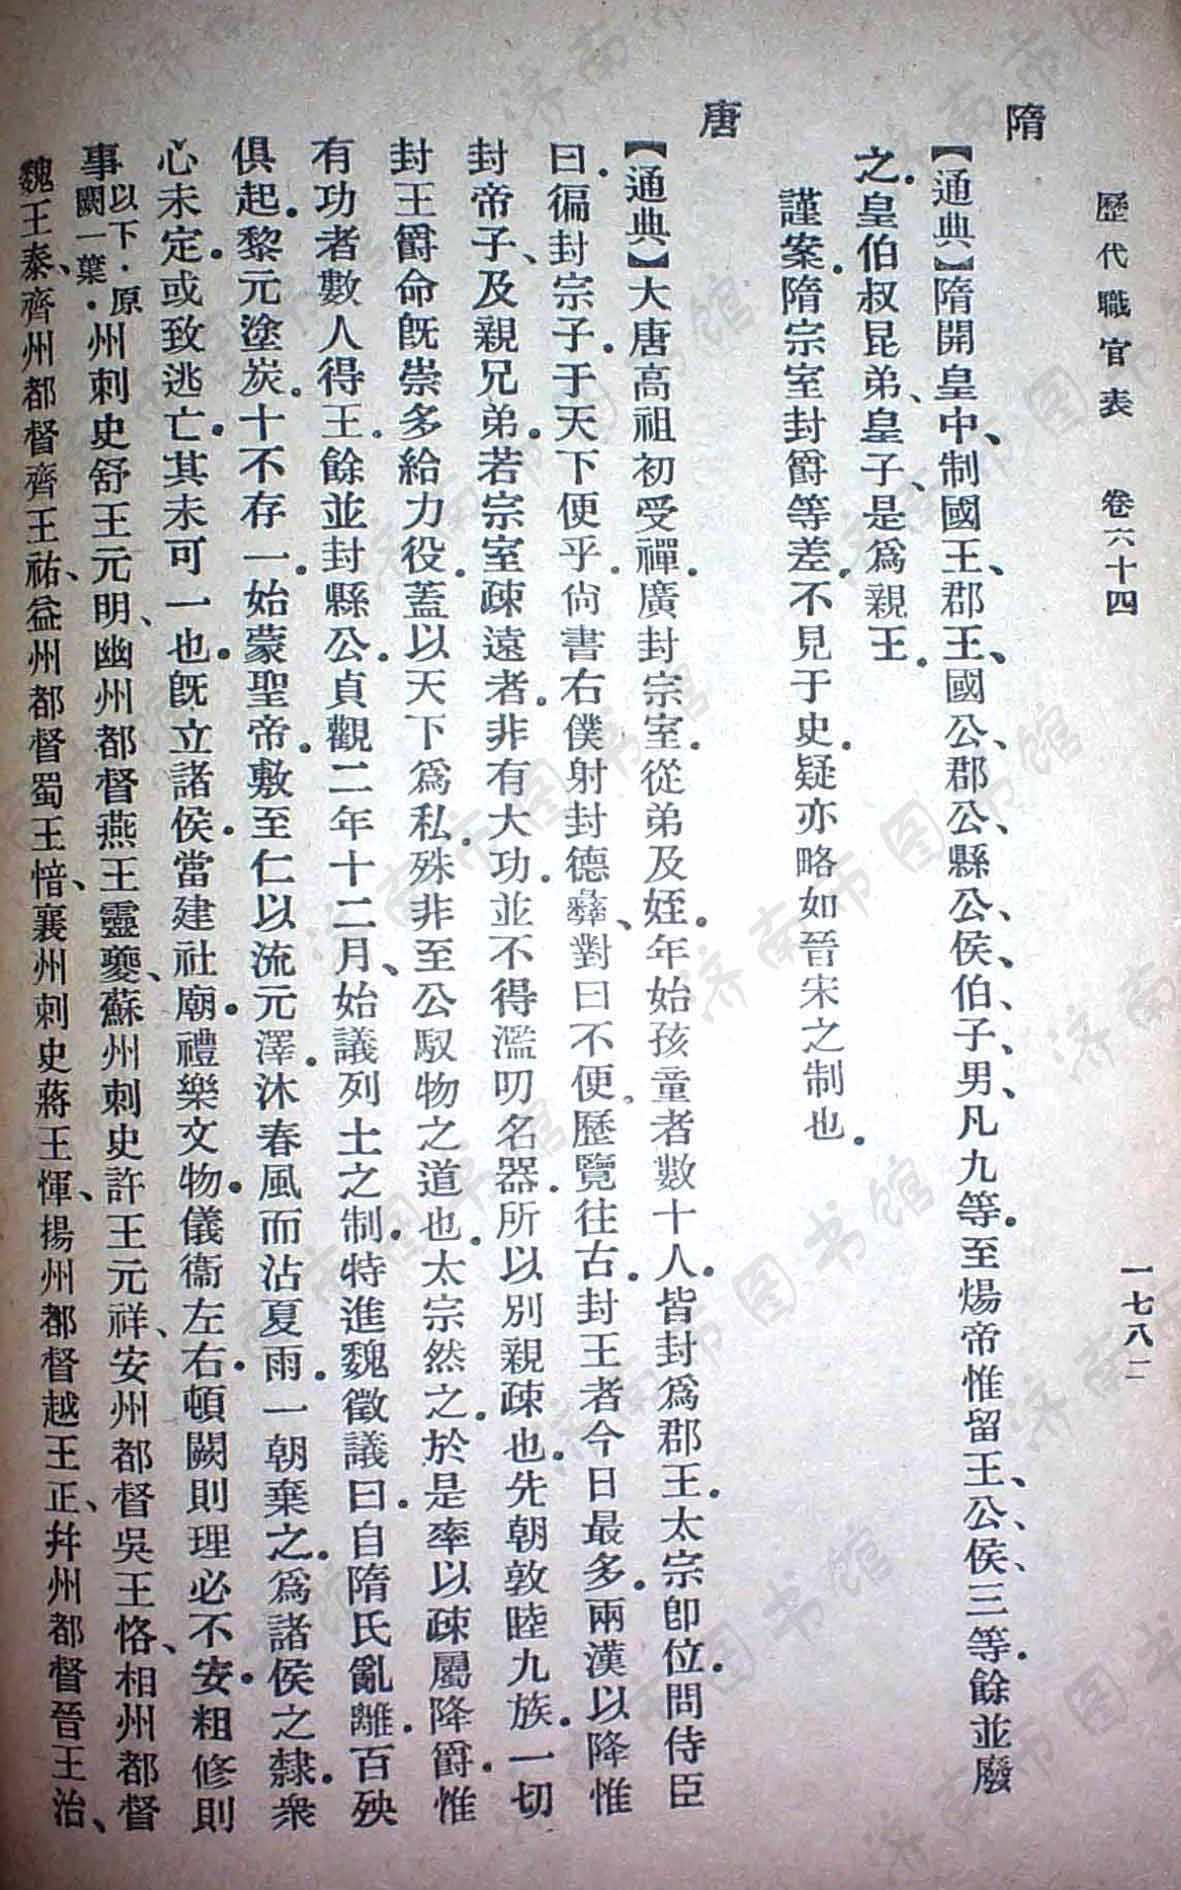 歷代職官表 卷六十四 一七八二
隋
【通典】隋開皇中、制國王、郡王、國公、郡公、縣公、侯、伯、子、男、凡九等。至煬帝惟留王、公、侯、三等。餘並廢
之。皇伯叔昆弟、皇子、是爲親王。
謹案。隋宗室封爵等差。不見于史。疑亦略如晉宋之制也。
唐
【通典】大唐高祖初受禪。廣封宗室。從弟及姪。年始孩童者數十人。皆封爲郡王。太宗卽位。問侍臣
曰。徧封宗子。于天下便乎。尙書右僕射封德彝、對曰不便。歷覽往古。封王者今日最多。兩漢以降惟
封帝子、及親兄弟。若宗室疎遠者。非有大功。並不得濫叨名器。所以別親疎也。先朝敦睦九族。一切
封王爵命旣崇多給力役。蓋以天下爲私。殊非至公馭物之道也。太宗然之。於是率以疎屬降爵。惟
有功者數人得王。餘並封縣公。貞觀二年十二月、始議列土之制。特進魏徵議曰。自隋氏亂離。百殃
俱起。黎元塗炭。十不存一。始蒙聖帝。敷至仁以流元澤。沐春風而沾夏雨。一朝棄之。爲諸侯之隸。衆
心未定。或致逃亡。其未可一也。旣立諸侯。當建社廟。禮樂文物。儀衞左右。頓闕則理必不安。粗修則
事以下．原闕一葉。州刺史舒王元明、幽州都督燕王靈夔、蘇州刺史許王元祥、安州都督吳王恪、相州都督
魏王泰、齊州都督齊王祐、益州都督蜀王愔、襄州刺史蔣王惲、揚州都督越王正、幷州都督晉王治、